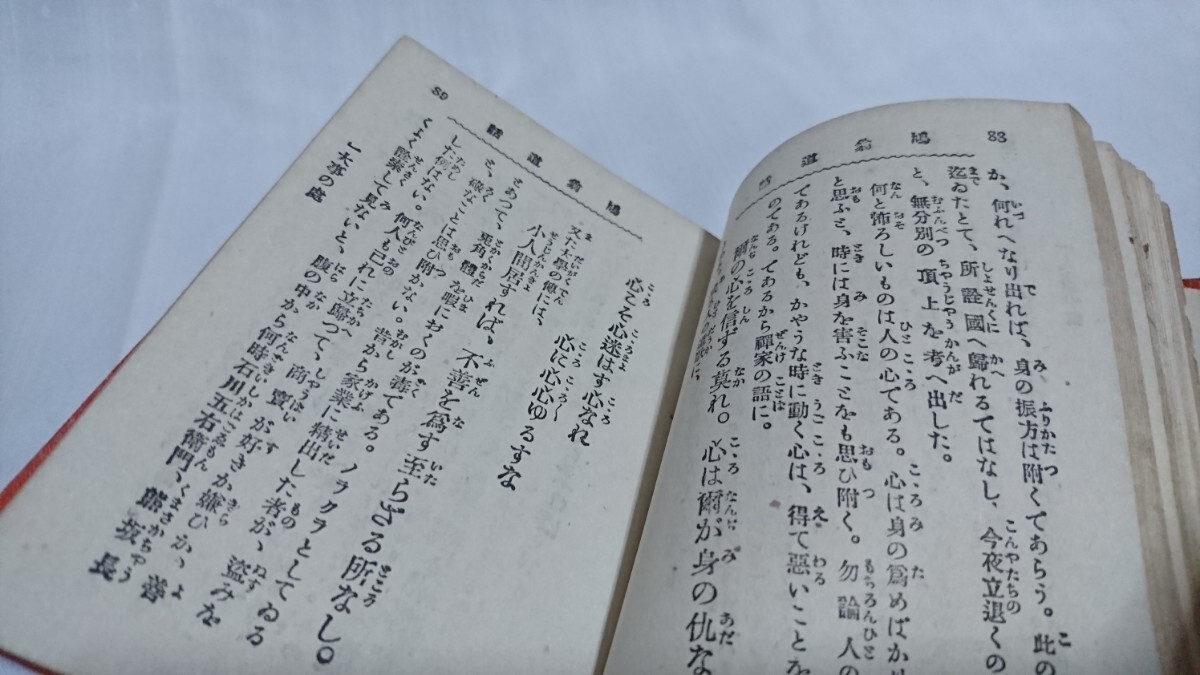 88
鳩翁道話
か、何れへなり出れば、身の振方は附くであらう。此の
迄ゐたとて、所詮國へ歸れるてはなし、今夜立退くの
と、無分別の頂上を考へ出した。
何と怖ろしいものは人の心である。心は身の爲めばか
と思ふと、時には身を害ふことをも思ひ附く。勿論人の
であるけれども、かやうな時に動く心は、得て惡いことを
のである。であるから禪家の語に。
爾の心を信ずる莫れ。心は爾が身の仇な
89
鳩翁道話
心こそ心迷はす心なれ
心に心心ゆるすな
又た大學の傳には、
小人間居すれば、不善を爲す至らざる所なし。
とあつて、兎角體な暇におくのが毒である。ノラクラとしてゐる
と、碌なことは思ひ附かない。昔から家業に精出した者が、盗みを
した例はない。何人も己れに立歸つて、商賣が好きか嫌ひか、よ
くよく詮索して見ないと、腹の中から何時石川五右衛門、熊坂長
大事の處
善